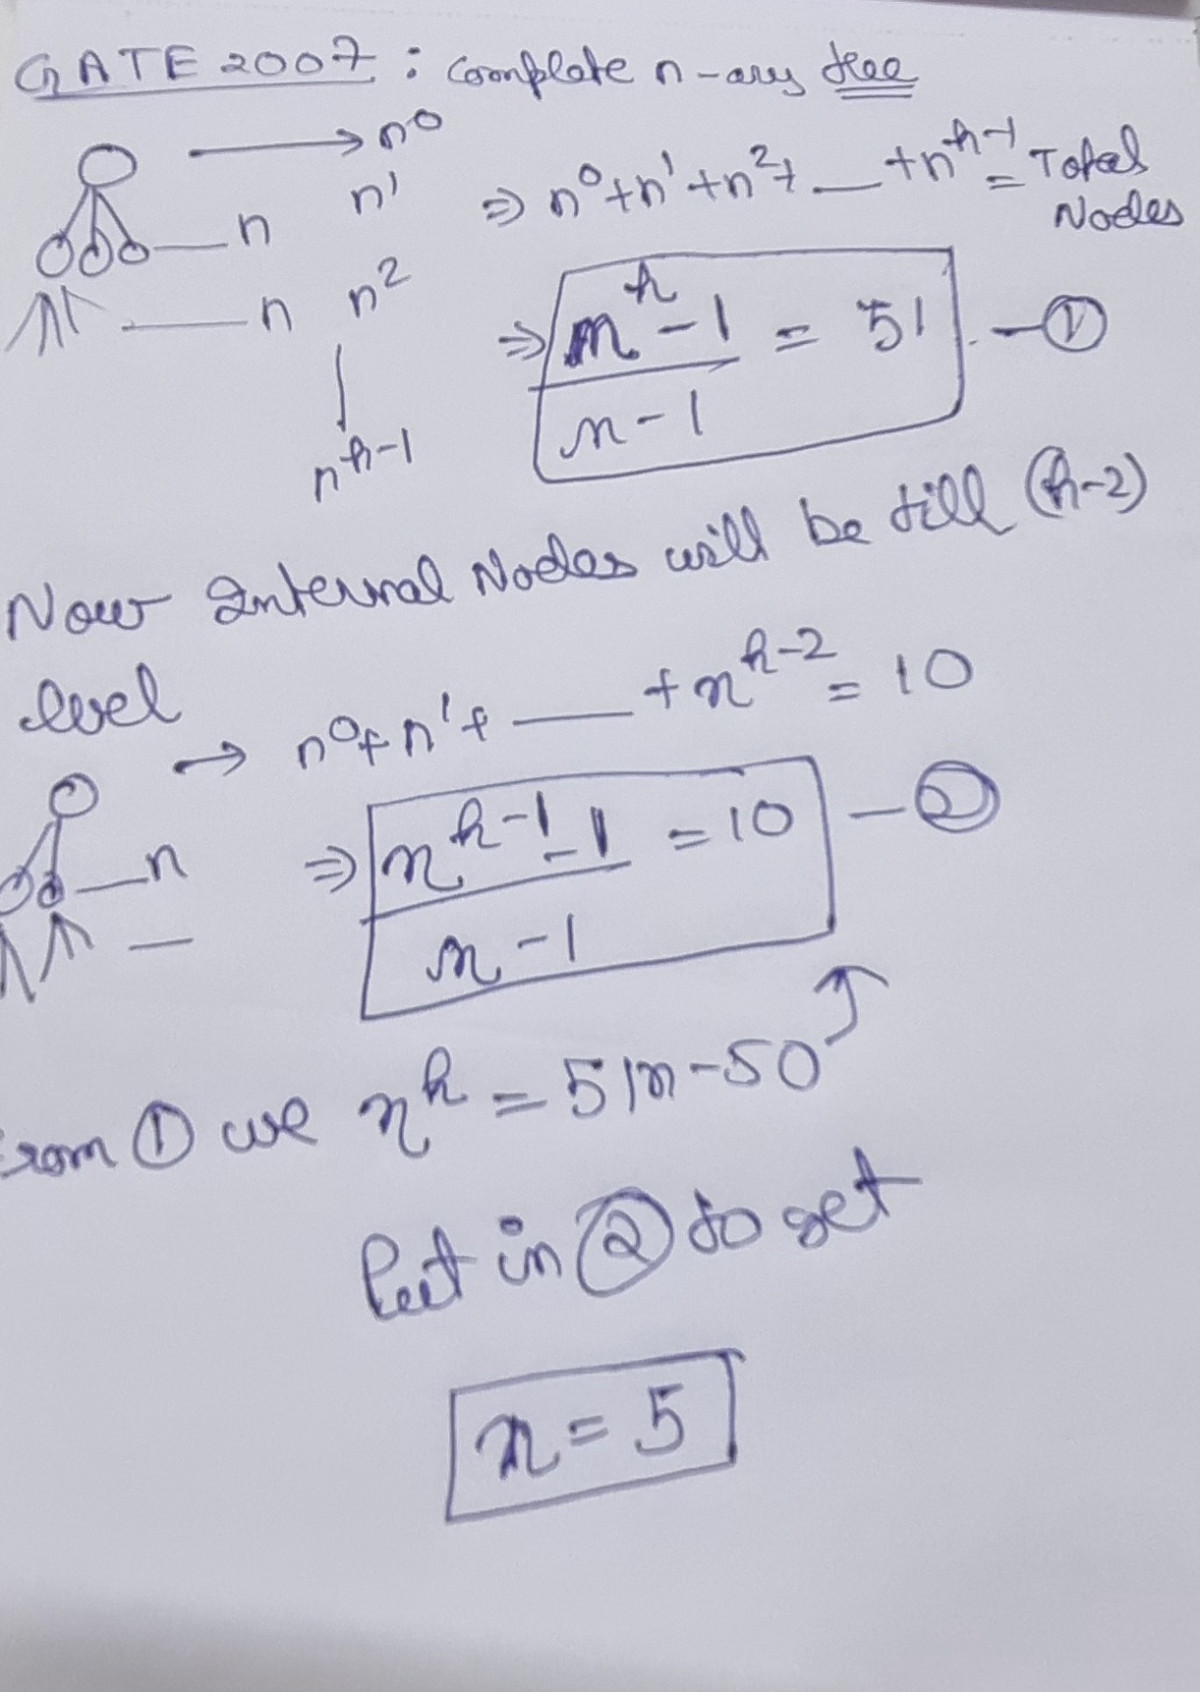 GATE 2007 : Complete n-ary tree
→ n^0
n^1
⇒ n^0+n^1+n^2+ __ +n^h-1 = Total Nodes
__ n
__ n n^2
⇒ n^h - 1 / n - 1 = 51 — ①
n^h-1
Now Internal Nodes will be till (h-2)
level
→ n^0+n^1+ __ +n^h-2 = 10
__ n
⇒ n^h-1 - 1 / n - 1 = 10 — ②
From ① we n^h = 51n-50
Put in ② to get
n = 5